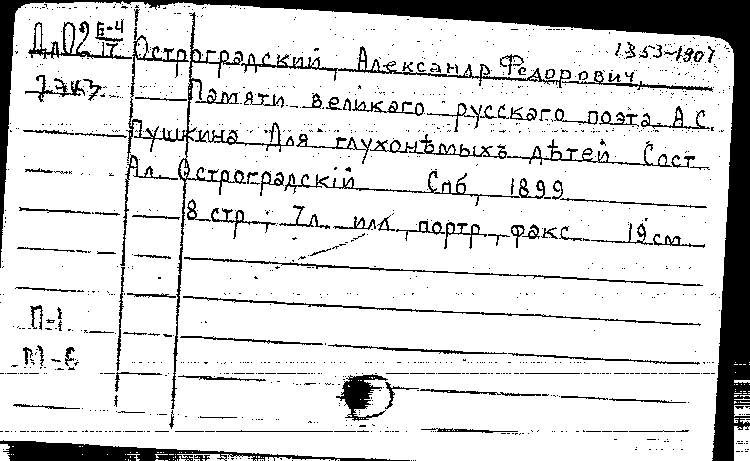 1853-1907
Остроградский, Александр Федорович,
Памяти великаго русскаго поэта А.С.
Пушкина Для глухонѣмыхъ дѣтей Сост
Ал. Остроградскій Спб, 1899
8 стр., 7л. илл, портр, факс 19см
П-1